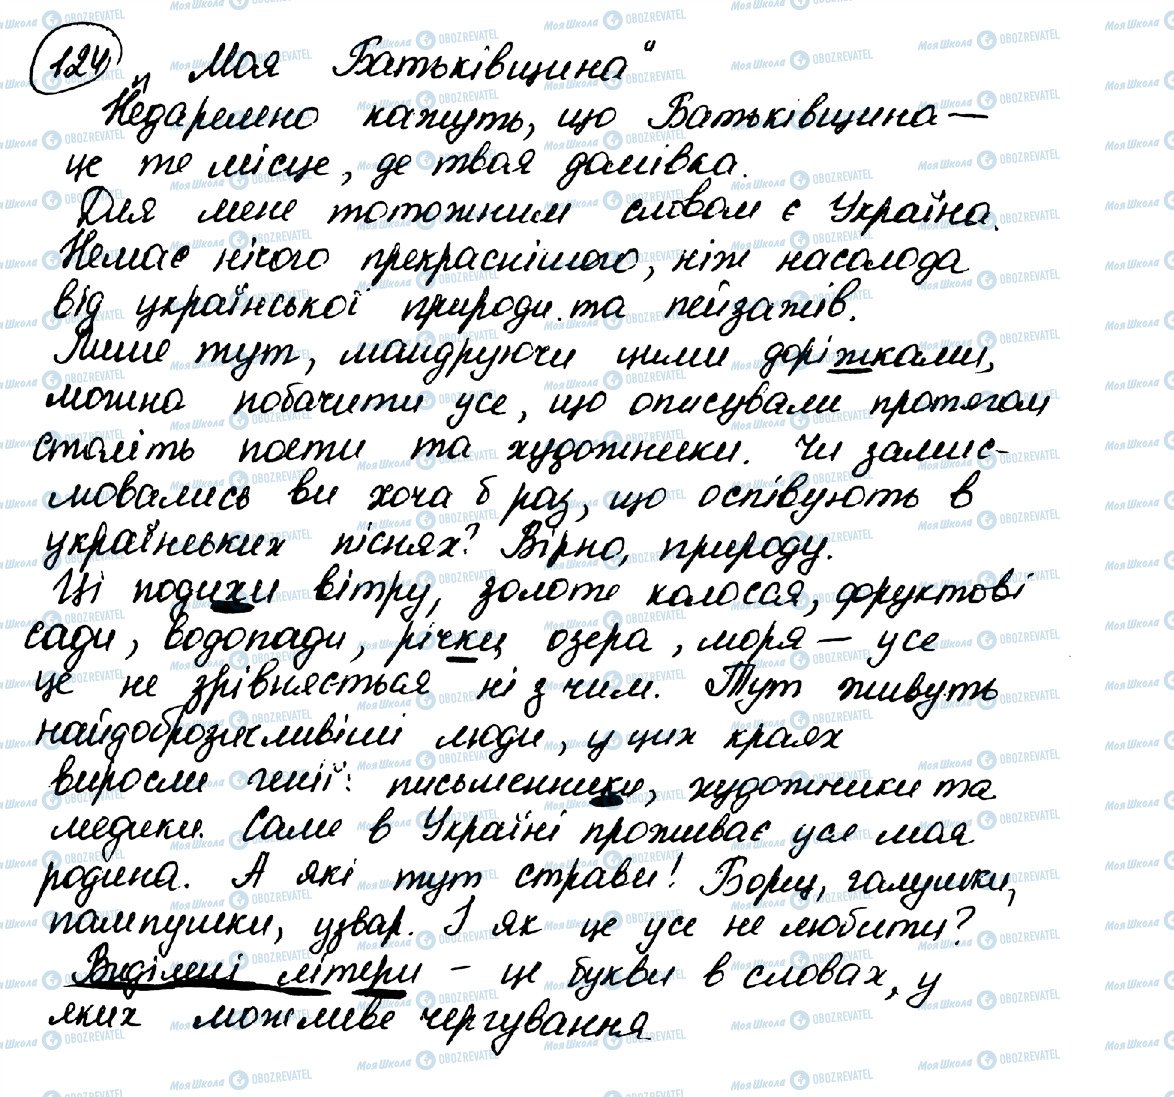 124
„Моя Батьківщина"
Недаремно кажуть, що Батьківщина —
це те місце, де твоя домівка.
Для мене тотожним словом є Україна.
Немає нічого прекраснішого, ніж насолода
від української природи та пейзажів.
Лише тут, мандруючи цими доріжками,
можна побачити усе, що описували протягом
століть поети та художники. Чи замис-
лювались ви хоча б раз, що оспівують в
українських піснях? Вірно, природу.
Ці подихи вітру, золоте колосся, фруктові
сади, водопади, річки, озера, моря — усе
це не зрівняється ні з чим. Тут живуть
найдоброзичливіші люди, у цих краях
виросли генії: письменники, художники та
медики. Саме в Україні проживає уся моя
родина. А які тут страви! Борщ, галушки,
пампушки, узвар. І як це усе не любити?
Виділені літери — це букви в словах, у
яких можливе чергування